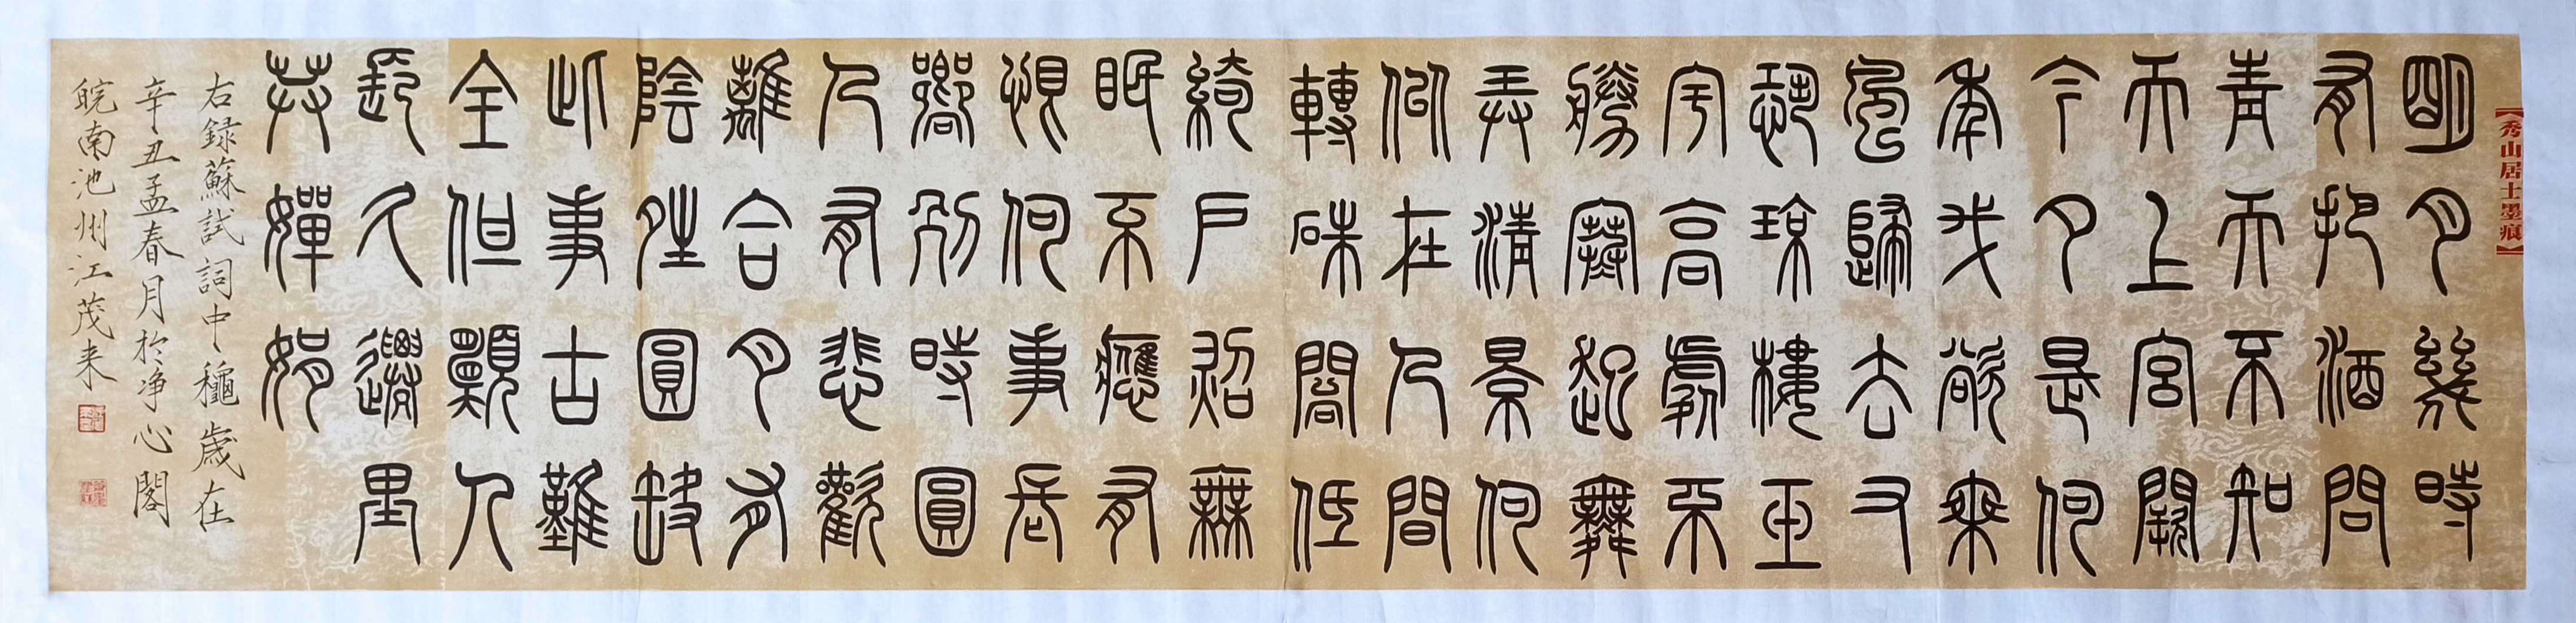 【秀山居士墨痕】
明月幾時
有把酒問
青天不知
天上宮闕
今夕是何
年我欲乘
風歸去又
恐瓊樓玉
宇高處不
勝寒起舞
弄清景何
似在人間
轉硃閣低
綺戶照無
眠不應有
恨何事長
嚮別時圓
人有悲歡
離合月有
陰夝圓缺
此事古難
全但願人
長久遷里
共嬋娟
右録蘇試詞中穐歲在
辛丑孟春月於净心閣
皖南池州江茂来